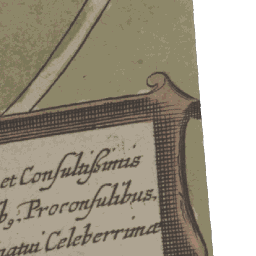 et Consultißimis
Proconsulibus,
Celeberrimæ